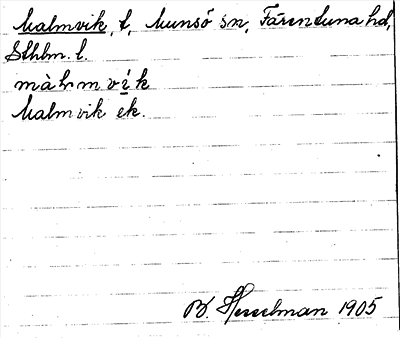 Malmvik, t, Munsö sn, Färentuna hd,
Sthlm. l.
màlmvi̍k
Malmvik ek.
B. Hesselman 1905